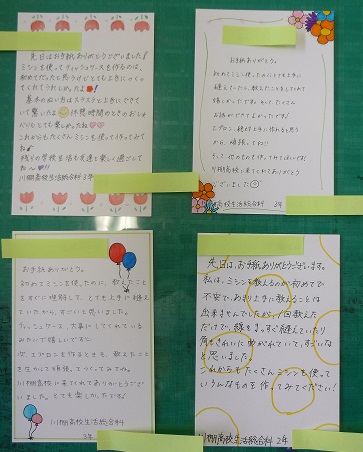 先日はお手紙ありがとうございました!
ミシンを使ってティッシュケースを作るのは、
初めてだったと思うけどとても上手につくっ
てくれてうれしかったよ!
基本のぬい方はスラスラと上手にできて
いて驚いたよ 休憩時間のときのおしゃ
べりもとても楽しかったね
これからもたくさんミシンを使って作ってみて
ね
残りの学校生活も友達と楽しく過ごして
ね〜!!
川棚高校生活総合科 3年
お手紙ありがとう。
初めてミシンを使ったのにとても上手に
縫えていたし、教えたことをしてくれて
嬉しかったですよ。そして、たくさん
お話ができてよかったです。
エプロン、絶対上手に作れると思う
から、頑張ってね!!
そして、他のものを作ってみてほしいです!
川棚高校に来てくれてありがとうご
ざいました
川棚高校生活総合科 3年
お手紙ありがとう。
初めてミシンを使ったのに、教えたこと
をすぐに理解して、とても上手に縫え
ていたから、すごいと思いました。
ティッシュケース、大事にしてくれている
みたいで嬉しいです。
次、エプロンを作るときも、教えたこと
を生かして頑張ってつくってみてね。
川棚高校に来てくれてありがとうござ
いました。とても楽しかったです。
川棚高校生活総合科
3年
先日は、お手紙ありがとうございます。
私は、ミシンを教えるのが初めてで
不安で、あまり上手に教えることは
出来ませんでしたが、1回教えた
だけで、線をまっすぐ縫えていたり
角をきれいに曲がれていて、すごいな
と思いました。
これからもたくさんミシンを使って
いろんなものを作ってみてください!
川棚高校生活総合科 2年